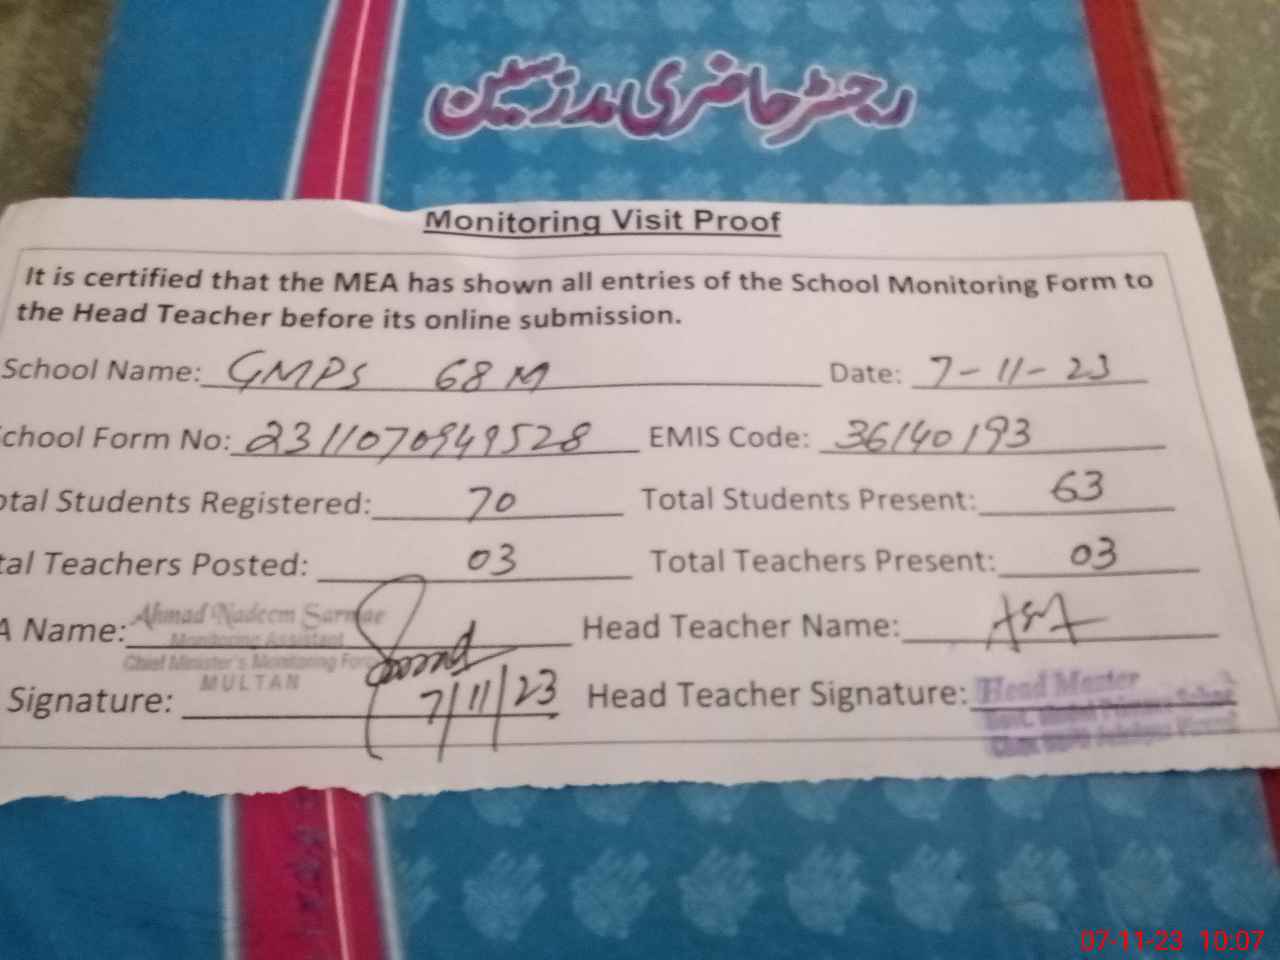 رجسٹر حاضری مدرسین
Monitoring Visit Proof
It is certified that the MEA has shown all entries of the School Monitoring Form to
the Head Teacher before its online submission.
School Name: GMPS 68 M Date: 7-11-23
chool Form No: 2311070949528 EMIS Code: 36140193
otal Students Registered: 70 Total Students Present: 63
tal Teachers Posted: 03 Total Teachers Present: 03
A Name: Ahmad Nadeem Head Teacher Name:
Monitoring Assistant
Chief Minister's Monitoring Force
MULTAN
Signature: 7/11/23 Head Teacher Signature: Head Master
07-11-23 10:07